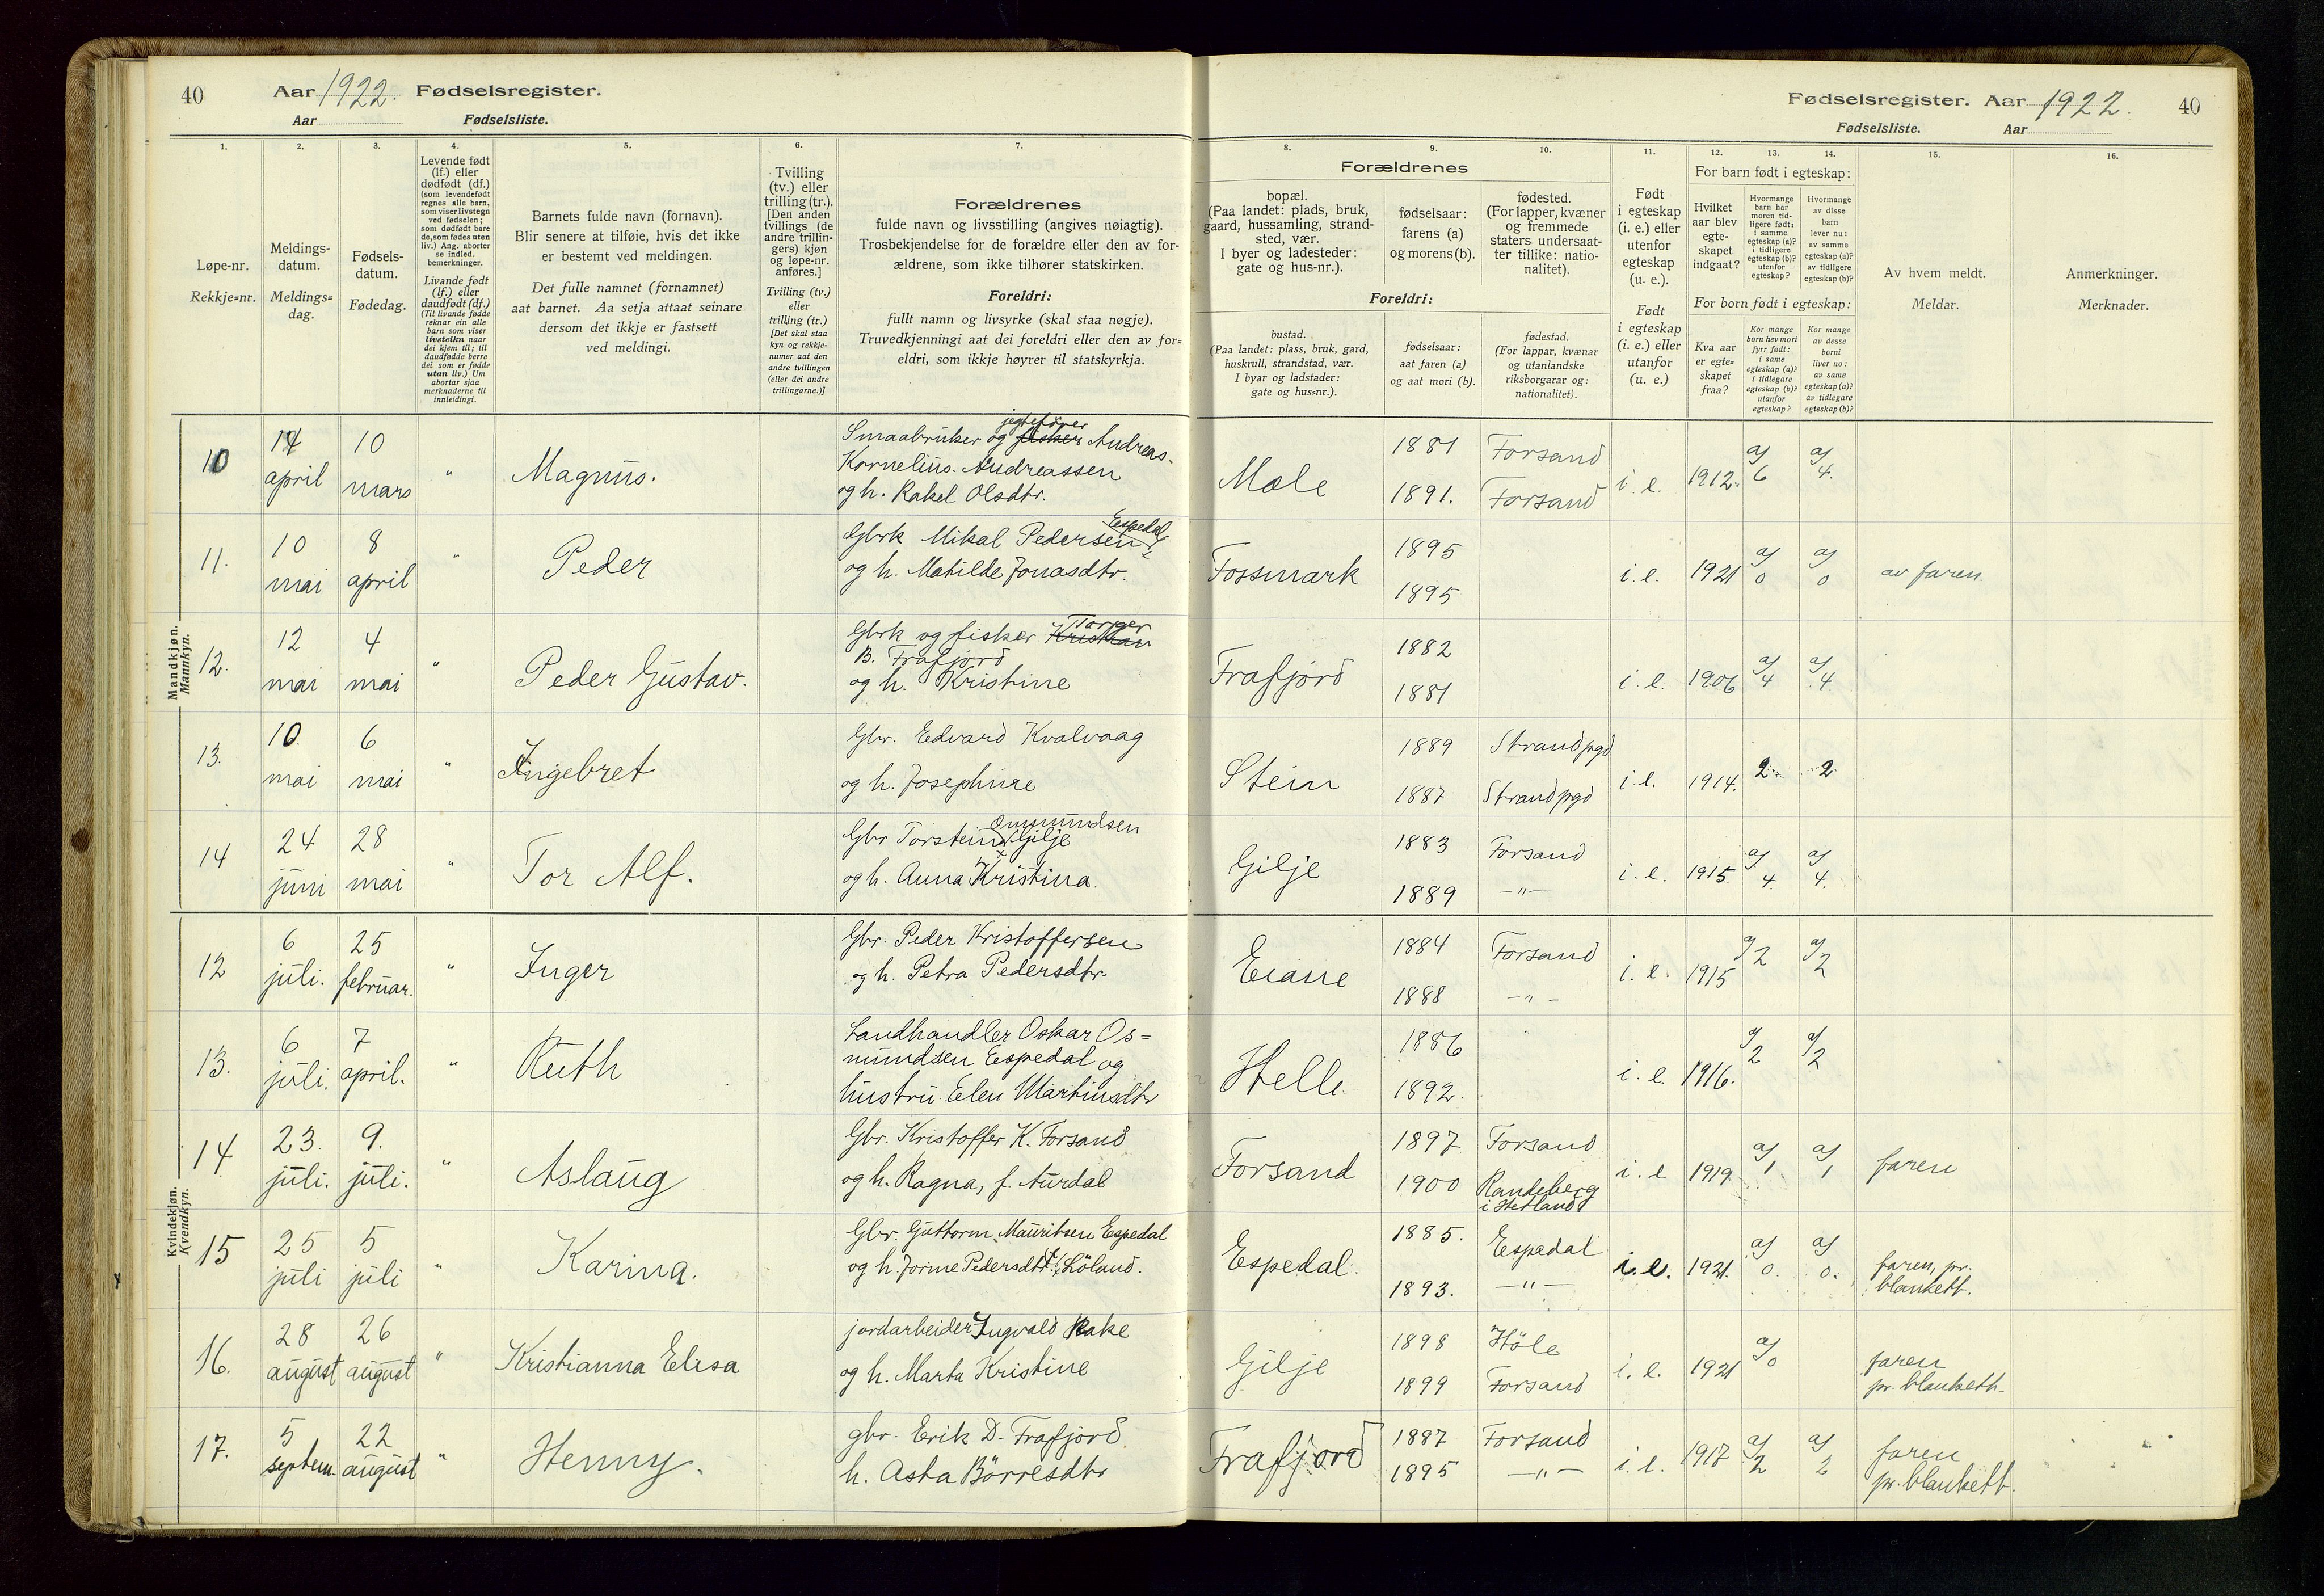 40 Aar 1922. Fødselsregister.
Aar Fødselsliste.
Fødselsregister. Aar 1922. 40
Fødselsliste. Aar
1. 2. 3. 4. 5. 6. 7.
Løpe-nr.
Rekkje=nr.
Meldings-
datum.
Meldings=
dag.
Fødsels-
datum.
Fødedag.
Levende født
(lf.) eller
dødfødt (df.)
(som levendefødt
regnes alle barn,
som viser livstegn
ved fødselen;
som dødfødt bare
de, som fødes uten
liv.) Ang. aborter
se indled.
bemerkninger.
Livande født
(lf.) eller
daudfødt (df.)
(Til livande fødde
reknar ein alle
barn som viser
livsteikn naar
dei kjem til; til
daudfødde berre
dei som er fødde
utan liv.) Um
abortar sjaa
merknaderne til
innleidingi.
Barnets fulde navn (fornavn).
Blir senere at tilføie, hvis det ikke
er bestemt ved meldingen.
Det fulle namnet (fornamnet)
aat barnet. Aa setja attaat seinare
dersom det ikkje er fastsett
ved meldingi.
Tvilling
(tv.) eller
trilling (tr.).
[Den anden
tvillings (de
andre trillin-
gers) kjøn
og løpe-nr.
anføres.]
Tvilling (tv.)
eller
trilling (tr.)
[Det skal staa
kyn og rekkje-
numer aat den
andre tvillingen
(eller dei andre
trillingarne.)]
Forældrenes
fulde navn og livsstilling (angives nøiagtig).
Trosbekjendelse for de forældre eller den av for-
ældrene, som ikke tilhører statskirken.
Foreldri:
fullt namn og livsyrke (skal staa nøgje).
Truvedkjenningi aat dei foreldri eller den av for=
eldri, som ikkje høyrer til statskyrkja.
8. 9. 10. 11. 12. 13. 14. 15. 16.
Forældrenes
bopæl.
(Paa landet: plads, bruk,
gaard, hussamling, strand-
sted, vær.
I byer og ladesteder:
gate og hus-nr.).
fødselsaar:
farens (a)
og morens (b).
fødested.
(For lapper, kvæner
og fremmede
staters undersaat-
ter tillike: natio-
nalitet).
Foreldri:
bustad.
(Paa landet: plass, bruk, gard,
huskrull, strandstad, vær.
I byar og ladstader:
gate og hus=nr.).
fødselsaar:
aat faren (a)
og aat mori (b).
fødestad.
(For lappar, kvænar
og utanlandske
riksborgarar og:
nationalitet).
Født
i egteskap
(i. e.) eller
utenfor
egteskap
(u. e.).
Født
i egteskap
(i. e.) eller
utanfor
(u. e.)
For barn født i egteskap:
Hvilket
aar blev
egte-
skapet
indgaat?
Hvormange
barn har
moren tid-
ligere født:
i samme
egteskap (a)?
i tidligere
egteskap (b)?
utenfor
egteskap?
Hvormange
av disse
barn
lever nu:
av samme
egteskap (a)?
av tidligere
egteskap (b)?
For born født i egteskap:
Kva aar
er egte=
skapet
fraa?
Kor mange
born hev mori
fyrr født:
i same
egteskap (a)?
i tidlegare
egteskap (b)?
utanfor
egteskap?
Kor mange
av desse
borni
liver no:
av same
egteskap (a)?
av tidlegare
egteskap (b)?
Av hvem meldt.
Meldar.
Anmerkninger.
Merknader.
Mandkjøn.
Mannkyn.
10 april 10 mars " Magnus. Smaabruker og fisker jegtefører Andreas
Kornelius Andreassen
og h. Rakel Olsdtr.
Mæle 1881 1891. Forsand Forsand i. e. 1912. a/6 a/4.
11. 10 mai 8 april " Peder Gbrk Mikal Pedersen Espedal
og h. Matilde Jonasdtr.
Fossmark 1895 1895 i. e. 1921 a/0 a/0 av faren.
12. 12 mai 4 mai " Peder Gustav. Gbrk og fisker Kristian Torger
B. Frafjord
og h. Kristine
Frafjord 1882 1881 i. e. 1906 a/4 a/4.
13. 10. mai 6 mai " Ingebret Gbr. Edvard Kvalvaag
og h. Josephine
Stein 1889 1887 Strand pgd Strand pgd i. e. 1914. 2. 2
14 24 juni 28 mai " Tor Alf. Gbr Torstein Ommundsen Gilje
og h. Anna Kristina.
Gilje 1883 1889 Forsand —"— i. e. 1915. a/4. a/4.
Kvindekjøn.
Kvendkyn.
12 6 juli. 25 februar. " Inger Gbr. Peder Kristoffersen
og h. Petra Pedersdtr.
Eiane 1884 1888 Forsand —"— i. e. 1915 a/2 a/2
13. 6 juli. 7 april. " Ruth Landhandler Oskar Os=
mundsen Espedal og
hustru Elen Martinsdtr
Helle. 1886 1892. i. e. 1916. a/2 a/2
14 23. juli. 9. juli. " Aslaug Gbr. Kristoffer K. Forsand
og h. Ragna, f. Aurdal
Forsand 1897 1900 Forsand Randeberg
i Hetland i. e 1919. a/1 a/1 faren
15 25 juli 5 juli " Karina. Gbr. Guttorm Mauritsen Espedal
og h. Jorine Pedersdtr. f. Löland.
Espedal. 1885. 1893. Espedal —"— i. e. 1921. a/0. a/0. faren, pr.
blankett.
16. 28 august 26 august " Kristianna Elisa jordarbeider Ingvald Rake
og h. Marta Kristine
Gilje 1898 1899 Höle Forsand i. e. 1921 a/0 faren
pr. blankett.
17. 5 septem. 22 august " Henny. gbr. Erik D. Frafjord.
h. Asta Börresdtr
Frafjord 1887 1895 Forsand —"— i. e. 1917 a/2 a/2 faren
pr. blankett.